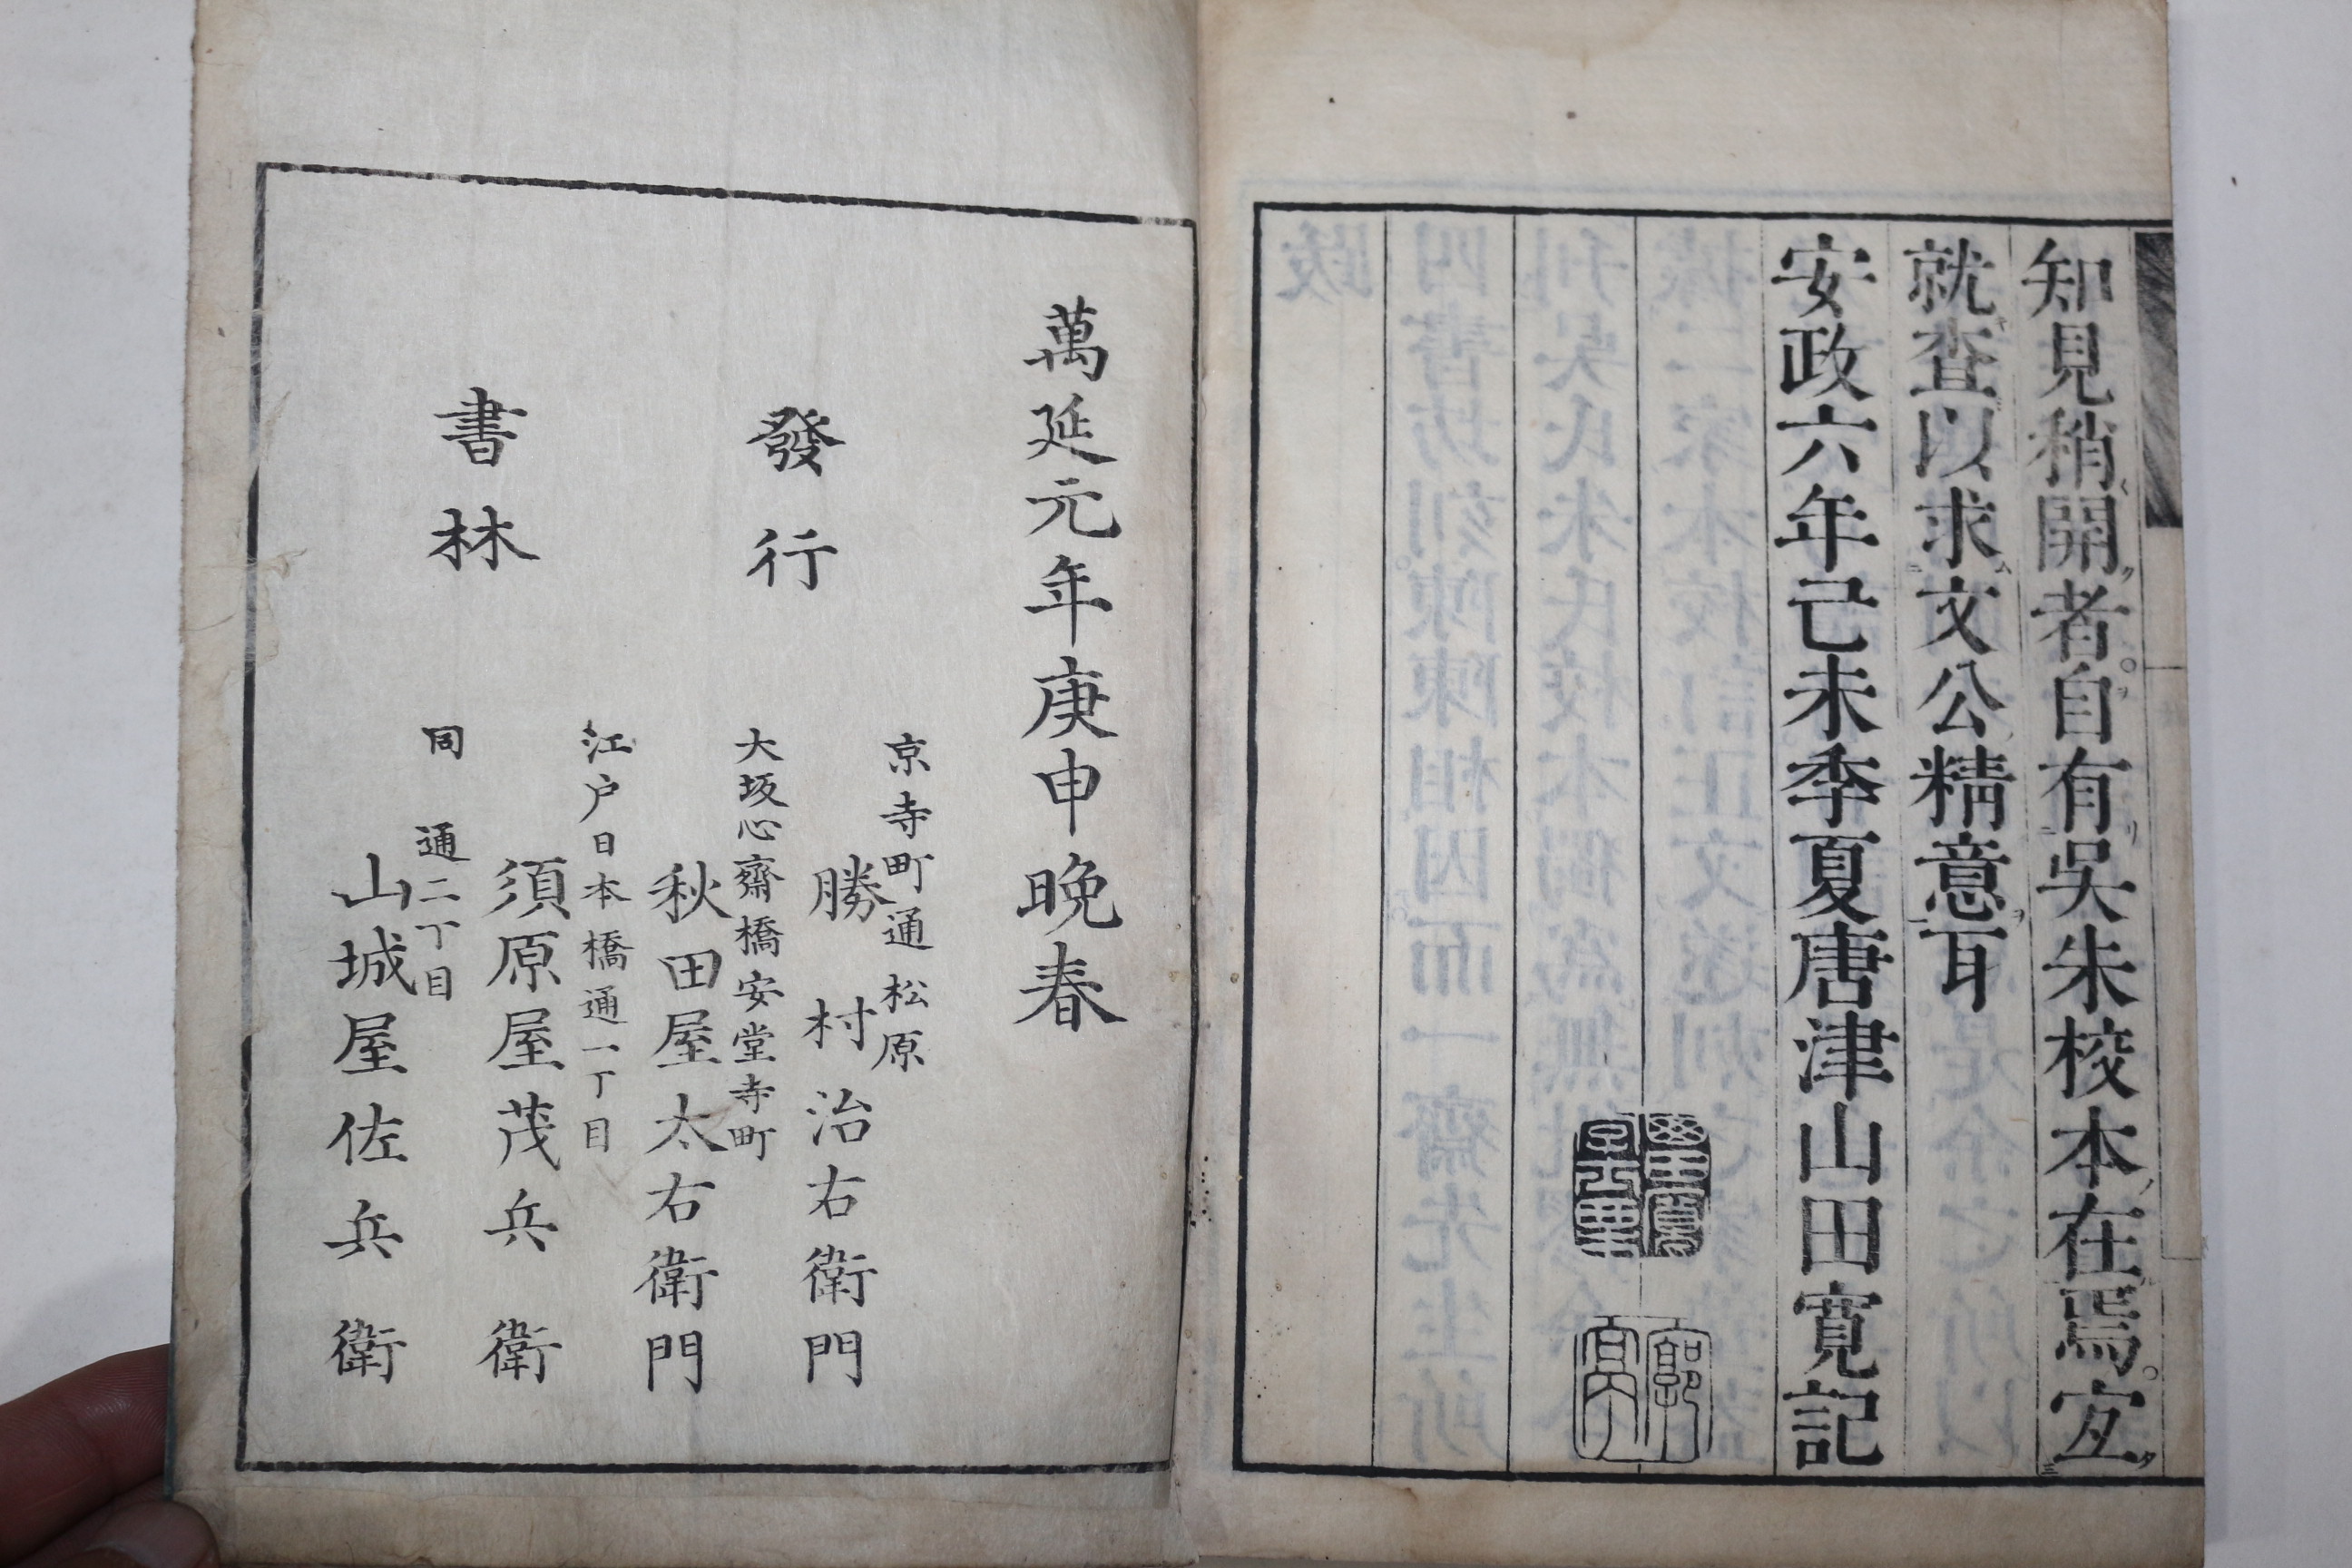 知見稍開者。自有吳朱校本在焉。宜
就查以求文公精意耳
安政六年己未季夏唐津山田寛記
萬延元年庚申晩春
發行
書林
京寺町通松原
勝村治右衛門
大坂心齋橋安堂寺町
秋田屋太右衛門
江戸日本橋通一丁目
須原屋茂兵衛
同 通二丁目
山城屋佐兵衛